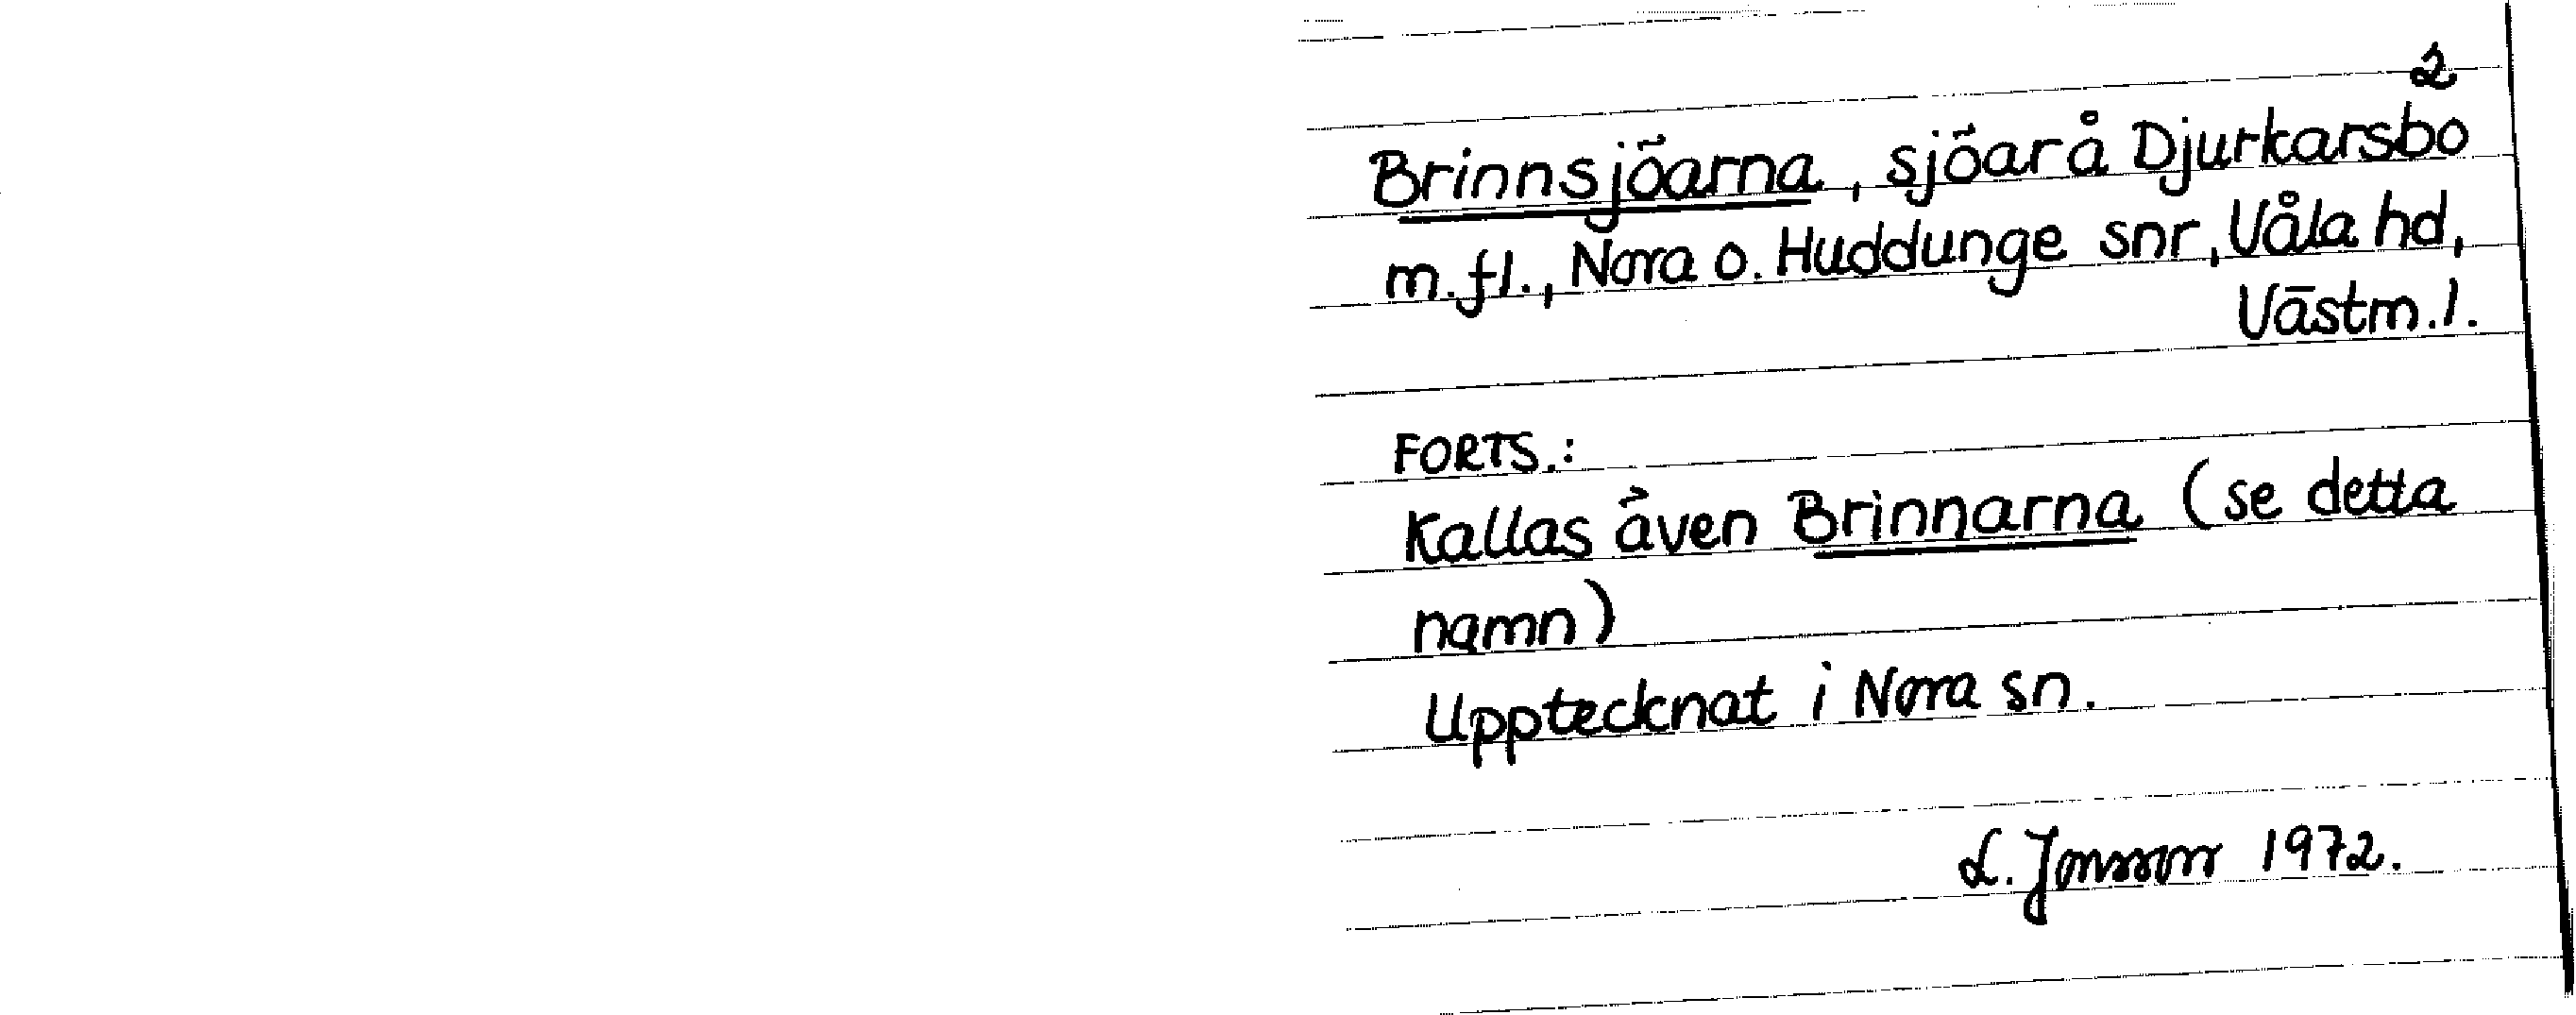 2
Brinnsjöarna, sjöar å Djurkarsbo
m.fl., Nora o. Huddunge snr, Våla hd,
Västm.l.
FORTS.:
Kallas även Brinnarna (se detta
namn)
Upptecknat i Nora sn.
L. Jonsson 1972.